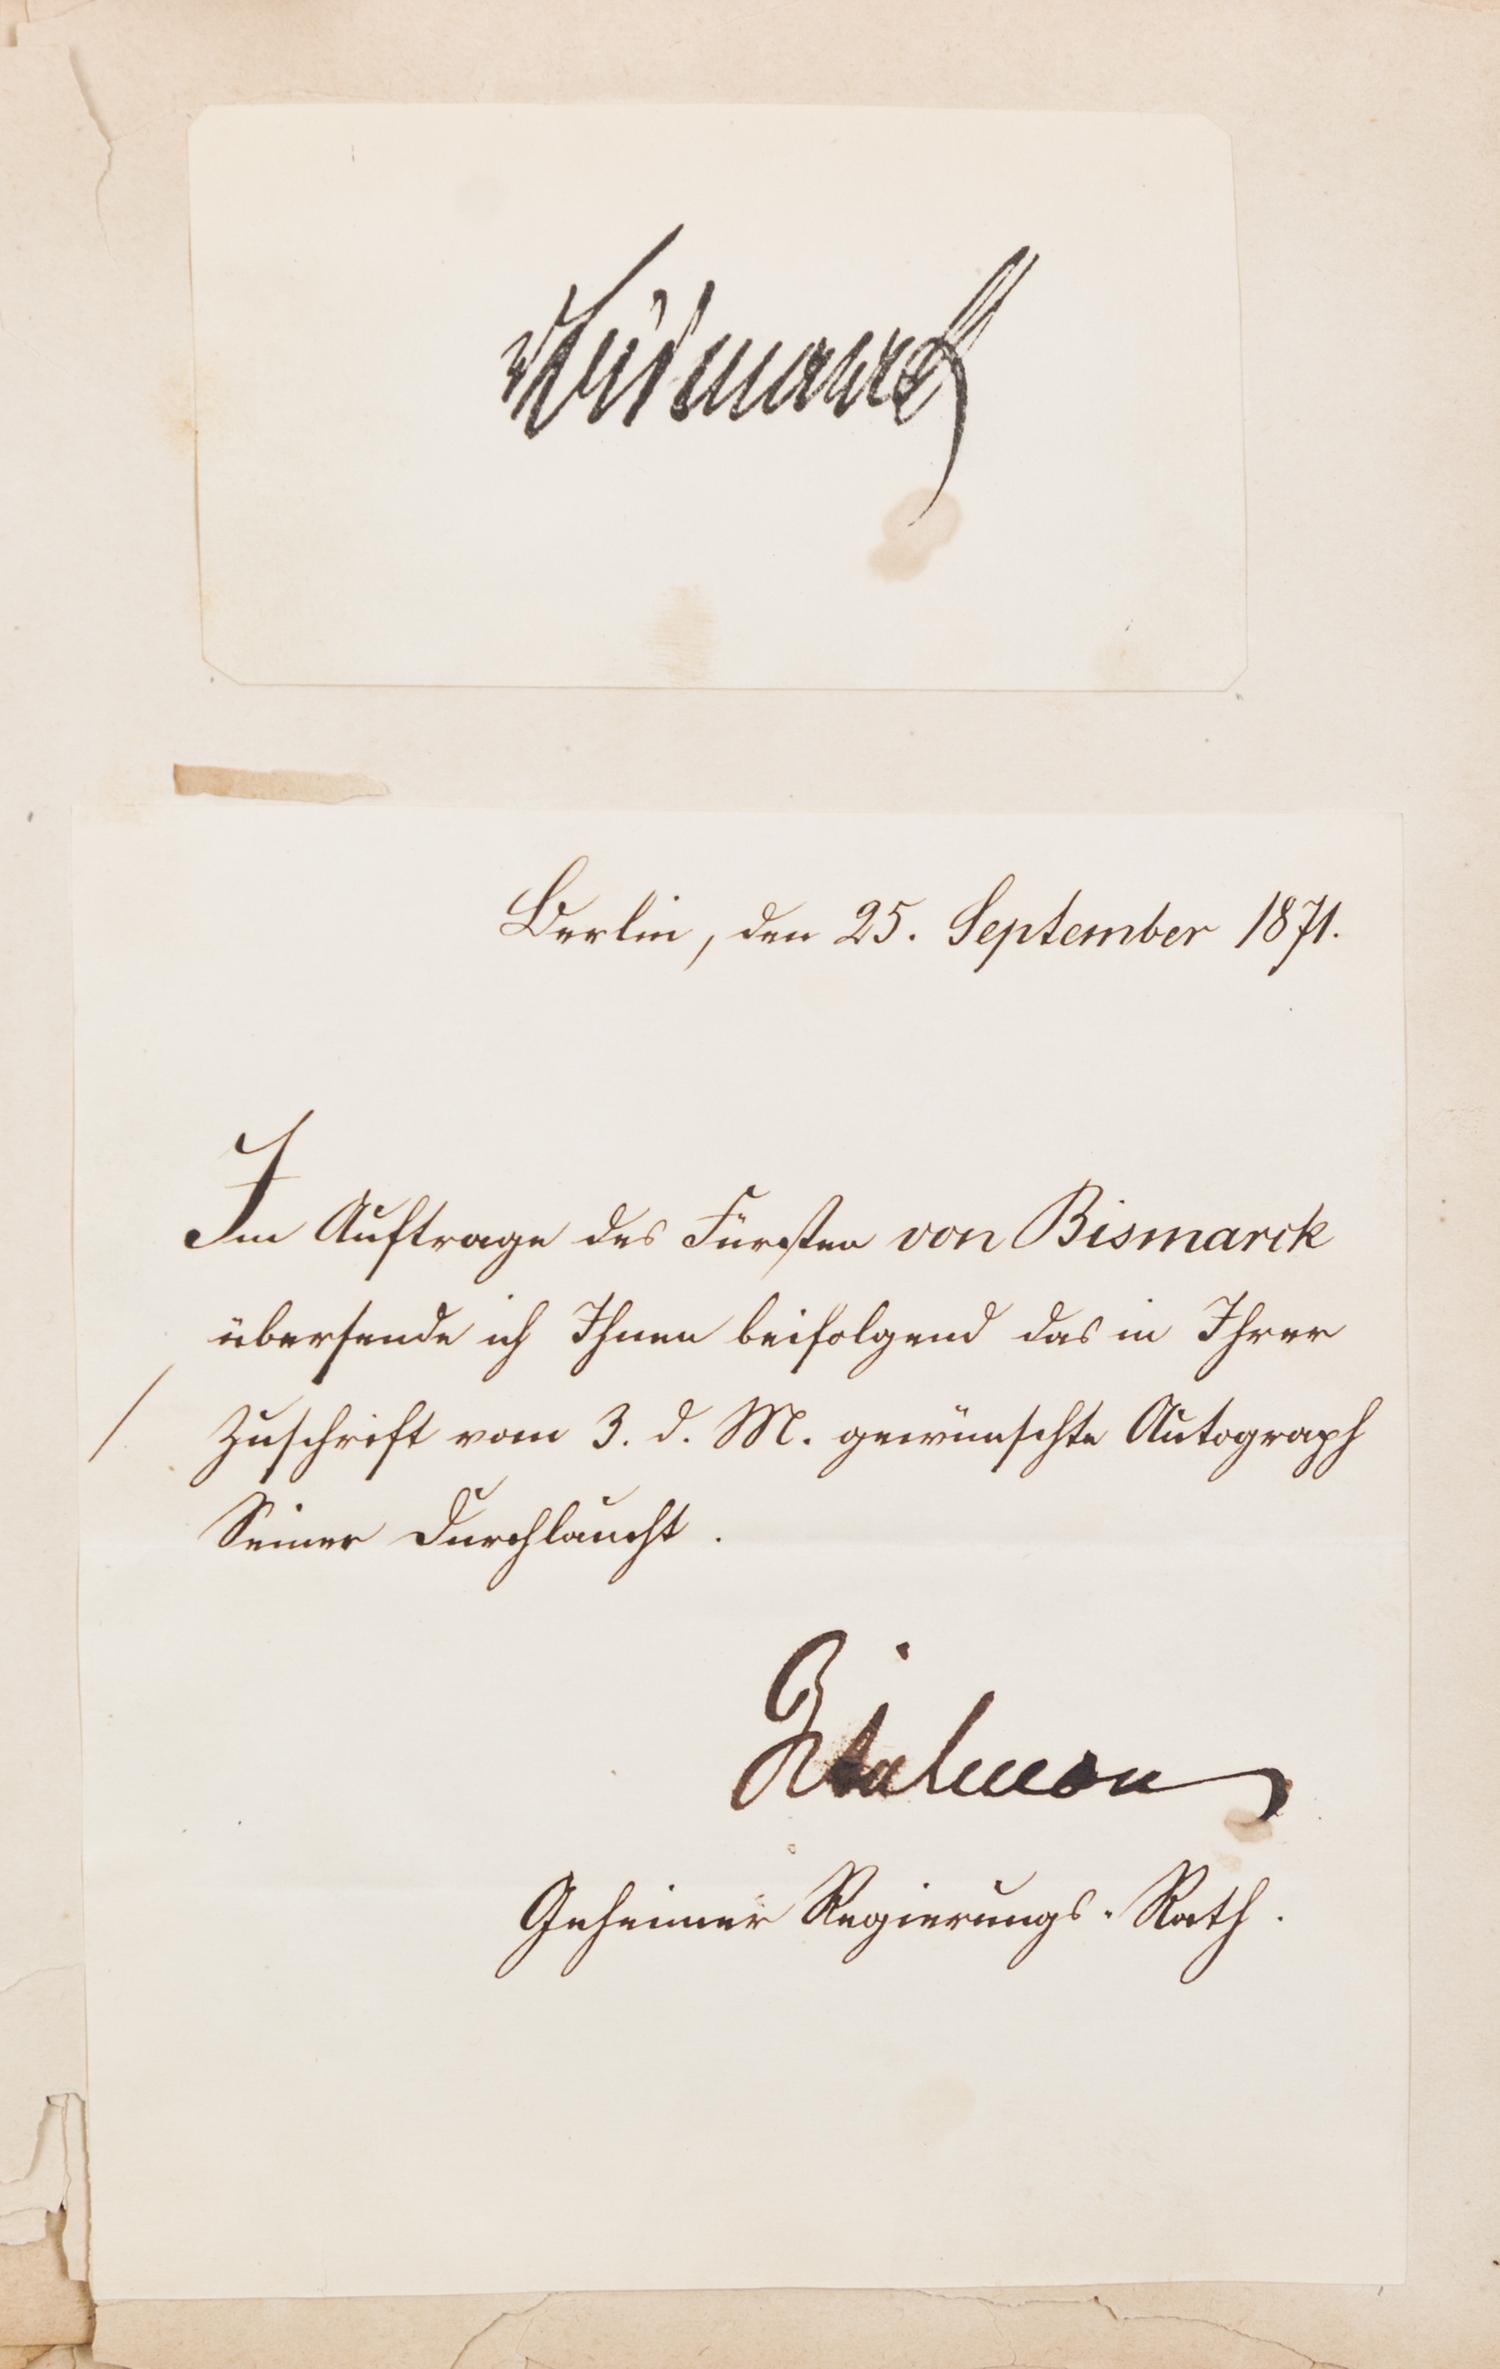 v Bismarck
Berlin, den 25. September 1871.
Im Auftrage des Fürsten von Bismarck
übersende ich Ihnen beifolgend das in Ihrer
/ Zuschrift vom 3. d. M. gewünschte Autograph
Seiner Durchlaucht.
Geheimer Regierungs-Rath.